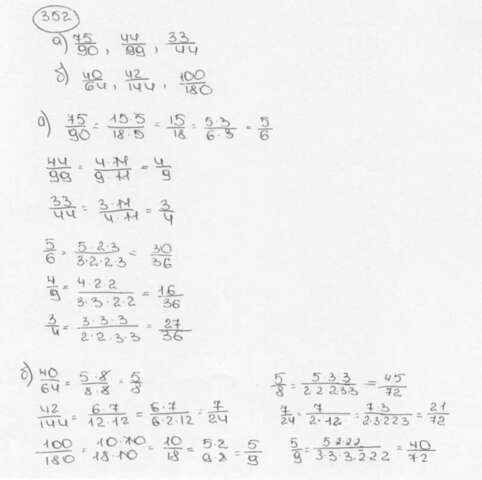 352
а) 75/90, 44/99, 33/44
б) 40/64, 42/144, 100/180
а) 75/90 = 15·5/18·5 = 15/18 = 5·3/6·3 = 5/6
44/99 = 4·11/9·11 = 4/9
33/44 = 3·11/4·11 = 3/4
5/6 = 5·2·3/3·2·2·3 = 30/36
4/9 = 4·2·2/3·3·2·2 = 16/36
3/4 = 3·3·3/2·2·3·3 = 27/36
б) 40/64 = 5·8/8·8 = 5/8
42/144 = 6·7/12·12 = 6·7/6·2·12 = 7/24
100/180 = 10·10/18·10 = 10/18 = 5·2/9·2 = 5/9
5/8 = 5·3·3/2·2·2·3·3 = 45/72
7/24 = 7/2·12 = 7·3/2·3·2·2·3 = 21/72
5/9 = 5·2·2·2/3·3·3·2·2·2 = 40/72